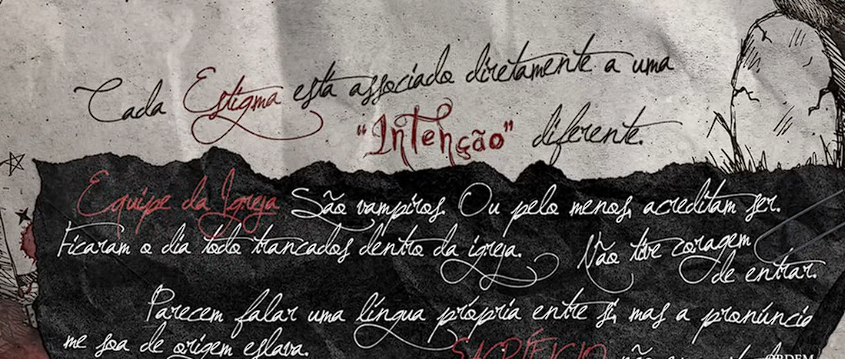 Cada Estigma está associado diretamente a uma
"Intenção" diferente.
Equipe da Igreja São vampiros. Ou pelo menos, acreditam ser.
Ficaram o dia todo trancados dentro da igreja. Não tive coragem
de entrar.
Parecem falar uma língua própria entre si, mas a pronúncia
me soa de origem eslava. SACRIFÍCIO não
ORDEM